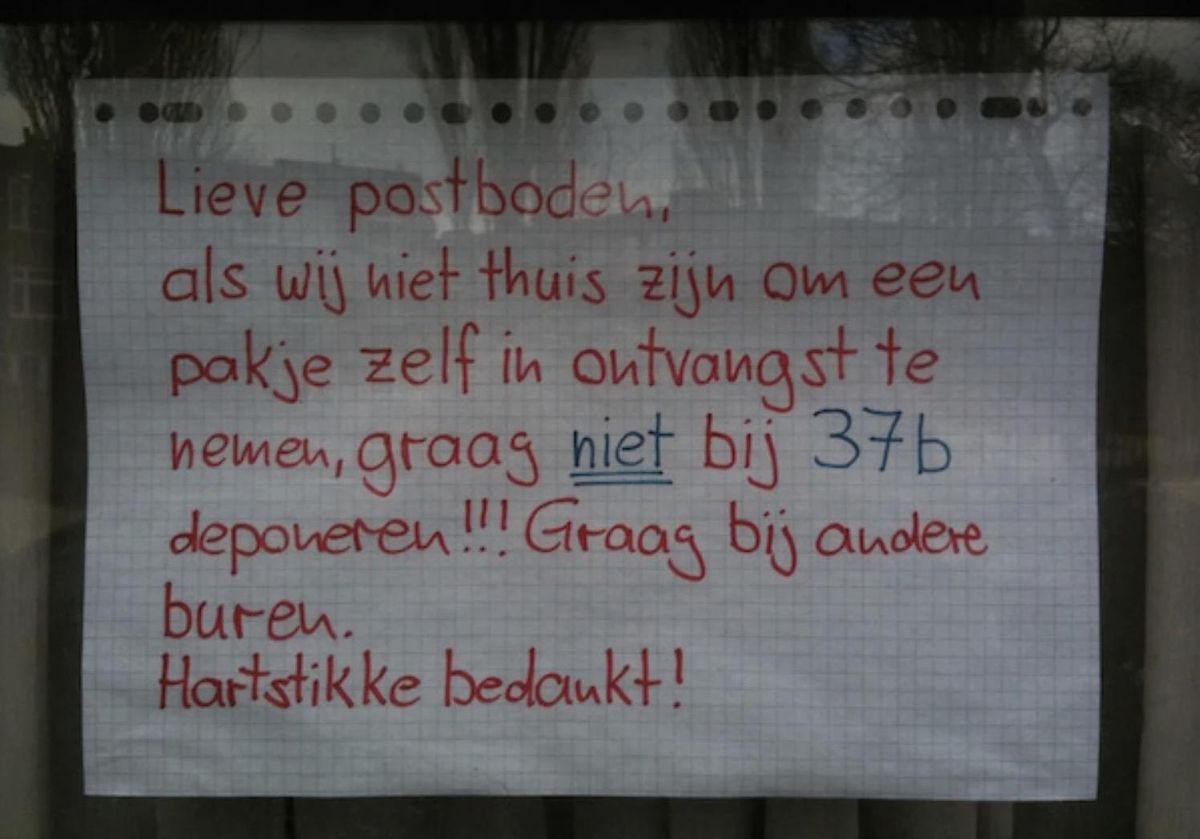 Lieve postboden,
als wij niet thuis zijn om een
pakje zelf in ontvangst te
nemen, graag niet bij 37b
deponeren!!! Graag bij andere
buren.
Hartstikke bedankt!